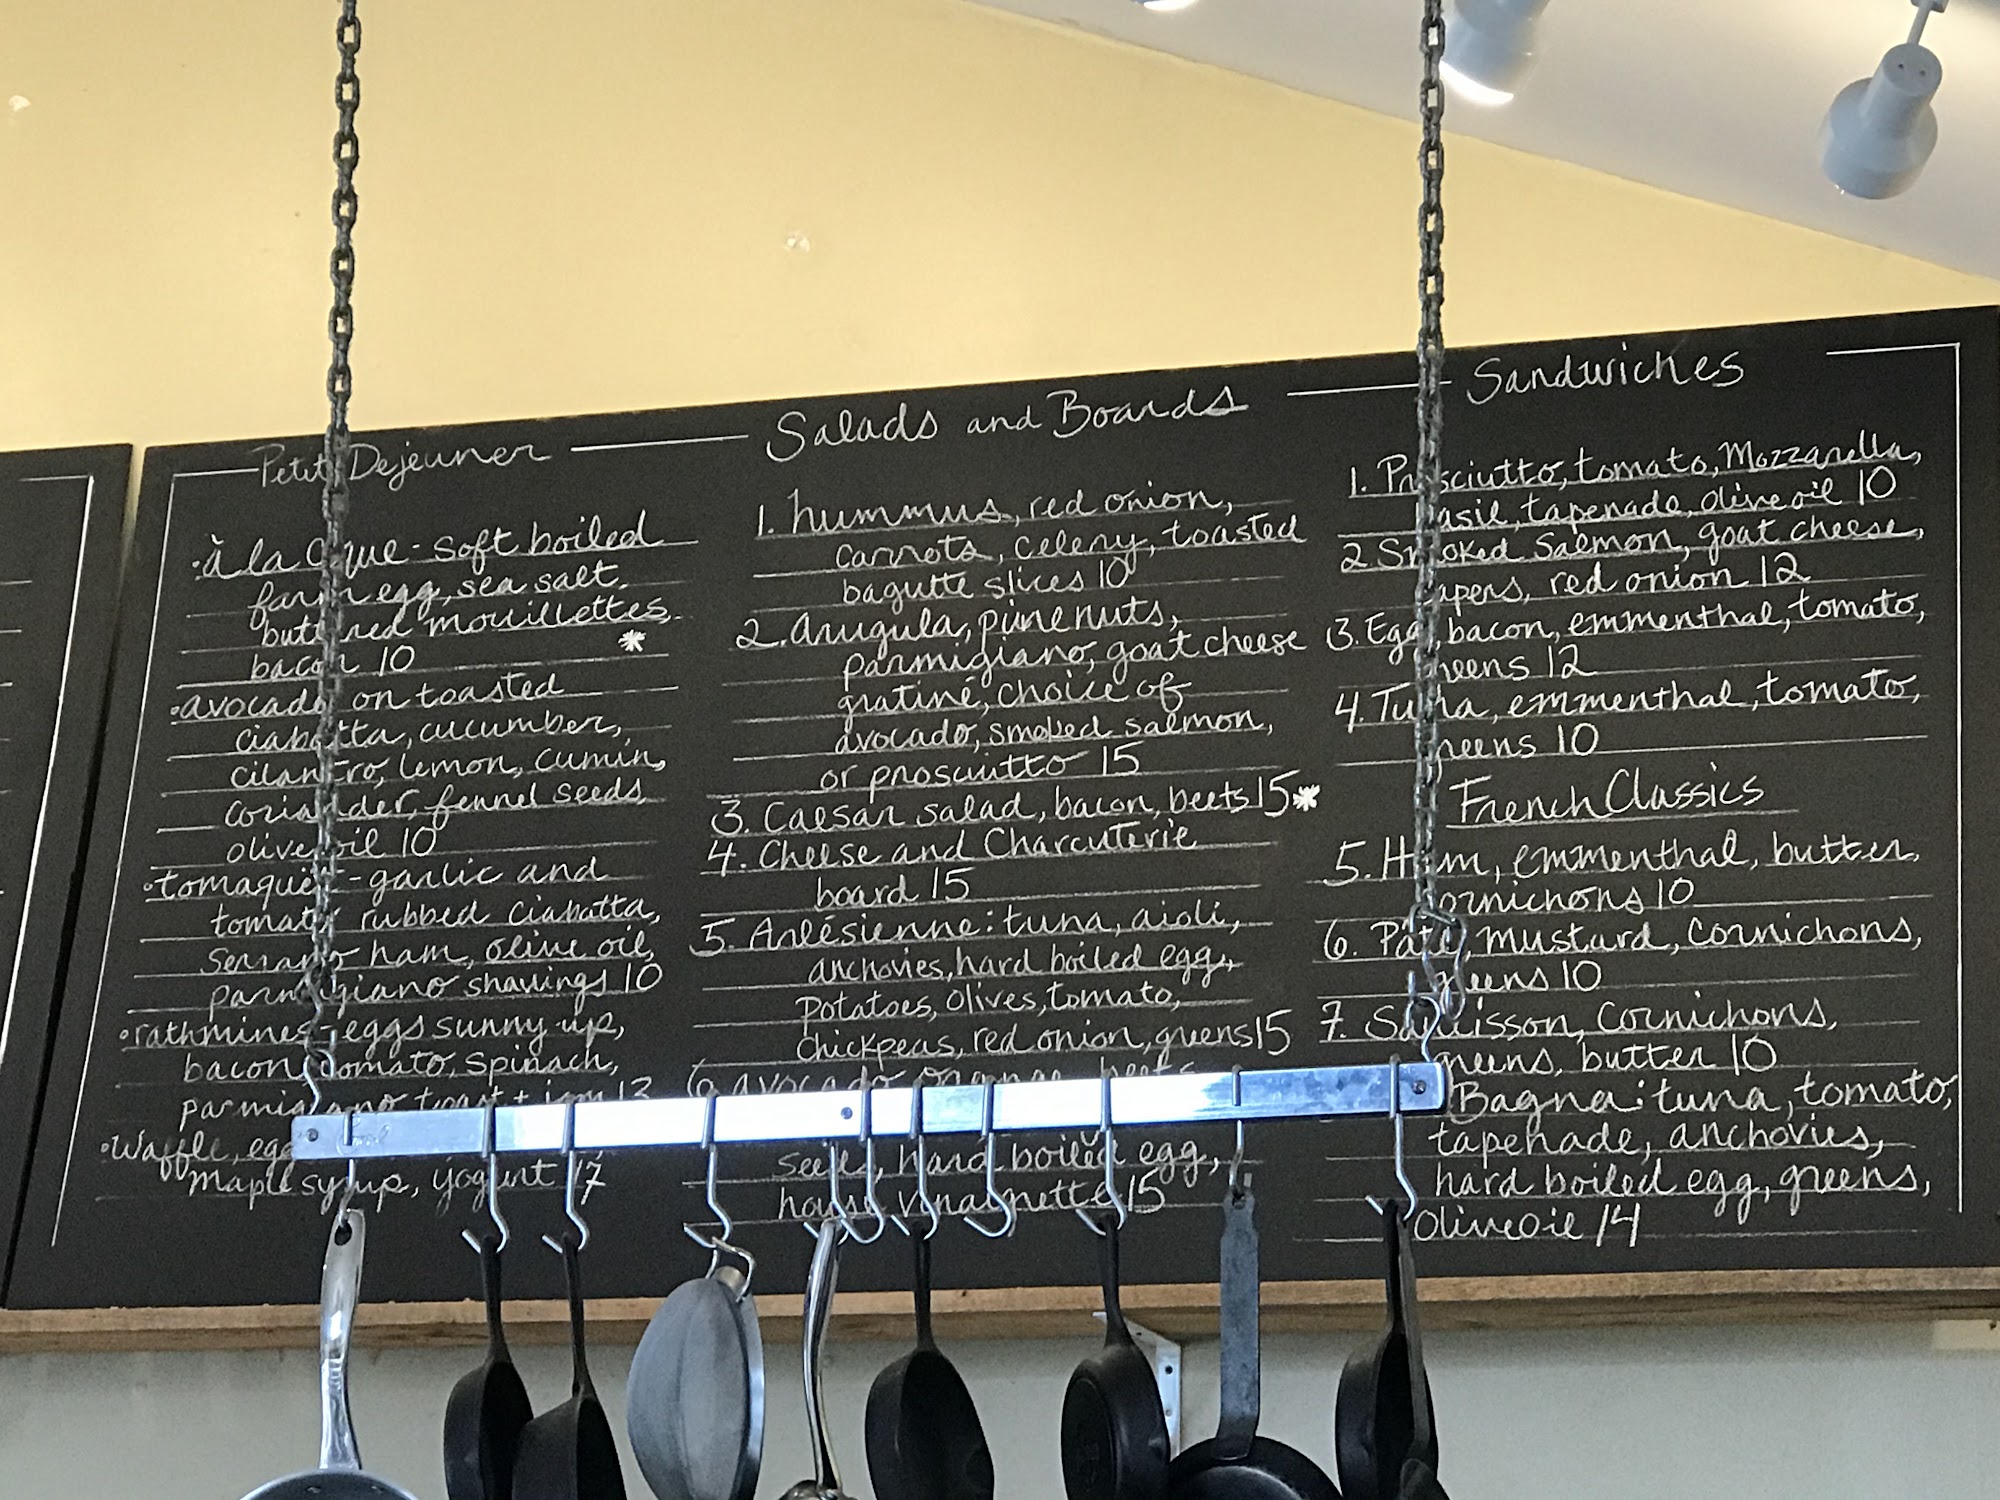 Petit Dejeuner
·à la Coque - soft boiled
farm egg, sea salt,
buttered mouillettes,
bacon 10 *
·avocado on toasted
ciabatta, cucumber,
cilantro, lemon, cumin,
coriander, fennel seeds,
olive oil 10
·tomaquet - garlic and
tomato rubbed ciabatta,
serrano ham, olive oil,
parmigiano shavings 10
·rathmines - eggs sunny up,
bacon, tomato, spinach,
parmigiano toast + jam 12
·Waffle, egg
maple syrup, yogurt 17
Salads and Boards
1. hummus, red onion,
carrots, celery, toasted
bagutte slices 10
2. arugula, pine nuts,
parmigiano, goat cheese
gratiné, choice of
avocado, smoked salmon,
or prosciutto 15
3. Caesar salad, bacon, beets 15 *
4. Cheese and Charcuterie
board 15
5. Arlésienne: tuna, aioli,
anchovies, hard boiled egg,
potatoes, olives, tomato,
chickpeas, red onion, greens 15
6 avocado, orange, beets
seeds, hard boiled egg,
house vinaigrette 15
Sandwiches
1. Prosciutto, tomato, Mozzarella,
basil, tapenade, olive oil 10
2 Smoked Salmon, goat cheese,
capers, red onion 12
3. Egg, bacon, emmenthal, tomato,
greens 12
4. Tuna, emmenthal, tomato,
greens 10
French Classics
5. Ham, emmenthal, butter,
cornichons 10
6. Paté, mustard, cornichons,
greens 10
7. Saucisson, Cornichons,
greens, butter 10
Bagna: tuna, tomato,
tapenade, anchovies,
hard boiled egg, greens,
Olive oil 14